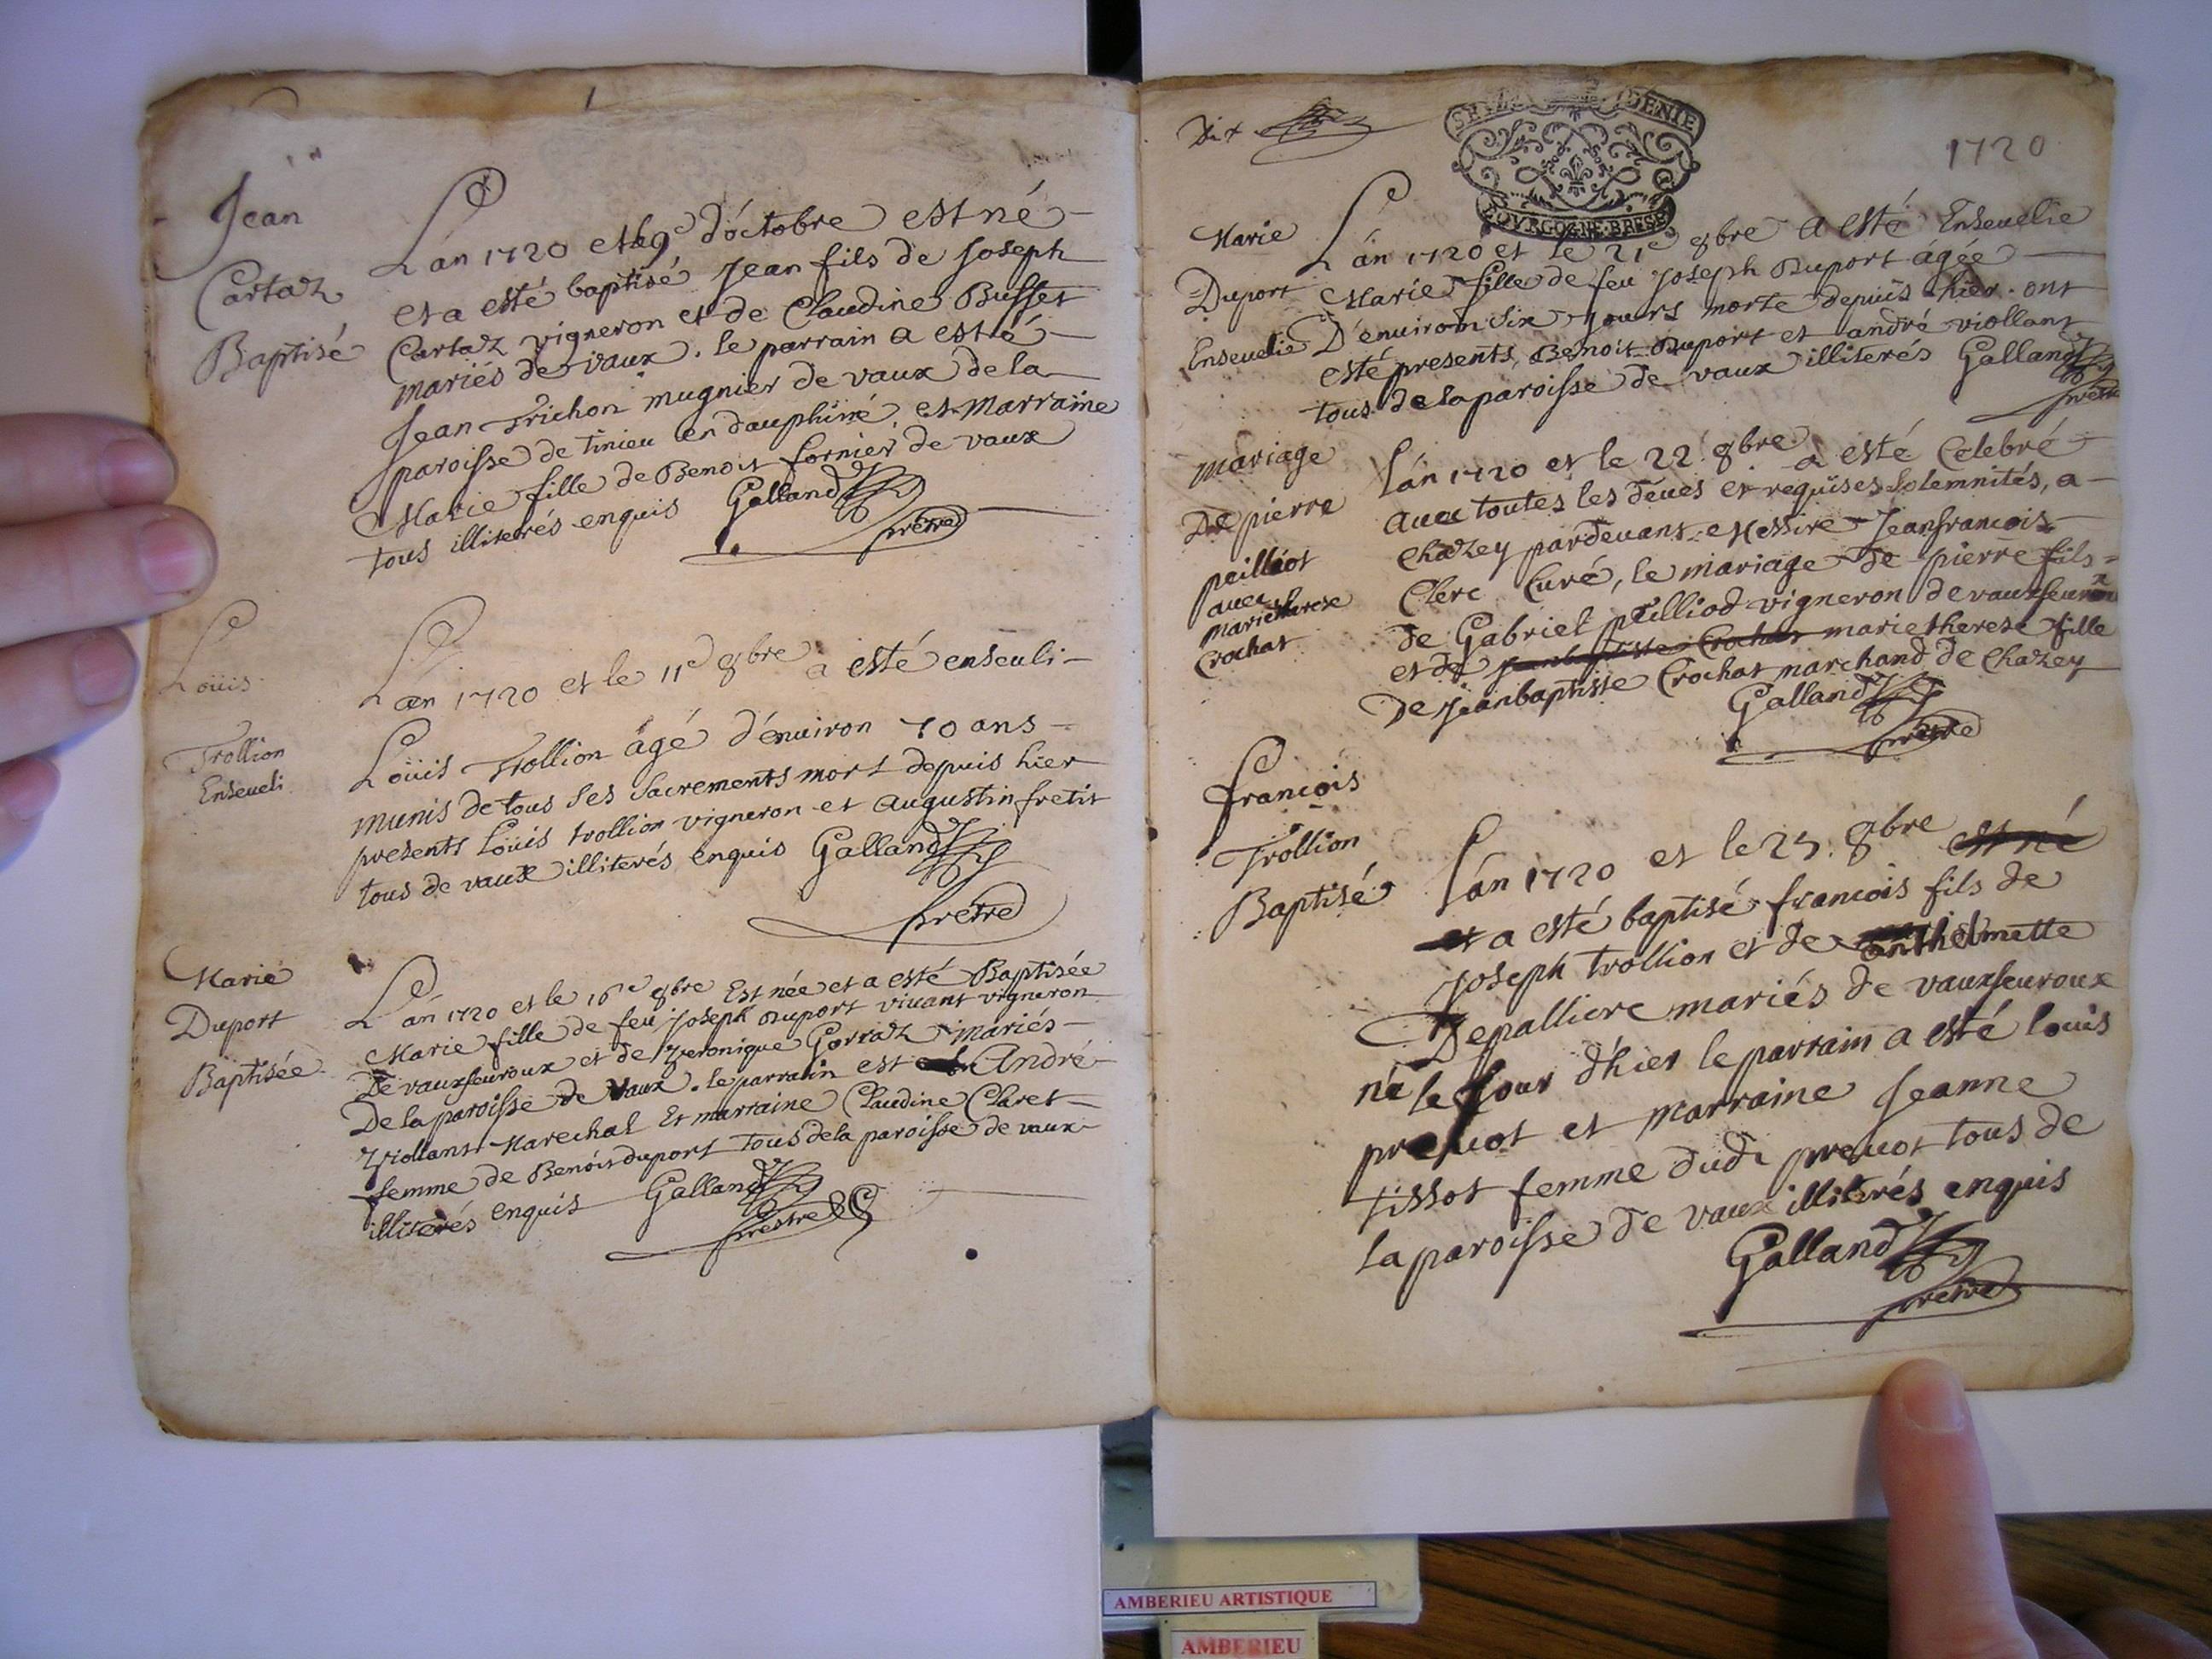 Jean
Cartaz
Baptisé
L'án 1720 et le 9e d'óctobre est né
et a esté baptisé Jean fils de Joseph
Cartaz vigneron et de Claudine Busset
mariés de vaux. le parrain a esté
Jean Frichon mugnier de vaux de la
paroisse de tinieu en dauphiné et Marraine
Marie fille de Benoit fornier de vaux
tous illiterés enquis Galland
prêtre
Loüis
Trollion
Enseueli
L'an 1720 et le 11e 8bre a esté enseuli
Loüis Trollion âgé d'énuiron 70 ans
munis de tous ses sacrements mort depuis hier
presents Loüis trollion vigneron et augustin fretit
tous de vaux illiterés enquis Galland
prêtre
Marie
Duport
Baptisée
L'án 1720 et le 16e 8bre Est née et a esté Baptisée
Marie fille de feu Joseph Duport viuant vigneron
De vauxfeuroux et de veronique Gorraz mariés
De la paroisse de vaux. le parrain est André
Viollant Marechal Et marraine Claudine Claret
femme de Benóit duport tous de la paroisse de vaux
illiterés enquis Galland
prestre
Dix
SEIZE DENIE
BOVRGOGNE BRESE
1720
Marie
Duport
Enseuelie
L'án 1720 et le 21e 8bre a esté Enseuelie
Marie fille de feu Joseph Duport âgée
D'énuiron six jours morte depuis hier. ont
esté presents, Benoit Duport et andré viollant
tous de la paroisse de vaux illiterés Galland
prêtre
mariage
De pierre
peilliot
auec
marietherese
Crochat
L'án 1720 et le 22. 8bre a esté Celebré
auec toutes les deues et requises solemnités, a
Chazey pardeuant Messire Jeanfrancois
Clerc Curé, le mariage de pierre fils
de Gabriel peilliod vigneron de vauxfeuroux
et de Jeanbaptiste Crochat marietherese fille
De Jeanbaptiste Crochat marchand de Chazey
Galland
prêtre
francois
Trollion
Baptisé
L'án 1720 et le 25. 8bre est né
et a esté baptisé francois fils de
Joseph trollion et de anthelmette
Depalliere mariés de vauxfeuroux
né le jour d'hier le parrain a esté louis
preuot et marraine Jeanne
tissot femme dudt preuot tous de
la paroisse de vaux illiterés enquis
Galland
prêtre
AMBERIEU ARTISTIQUE
AMBERIEU